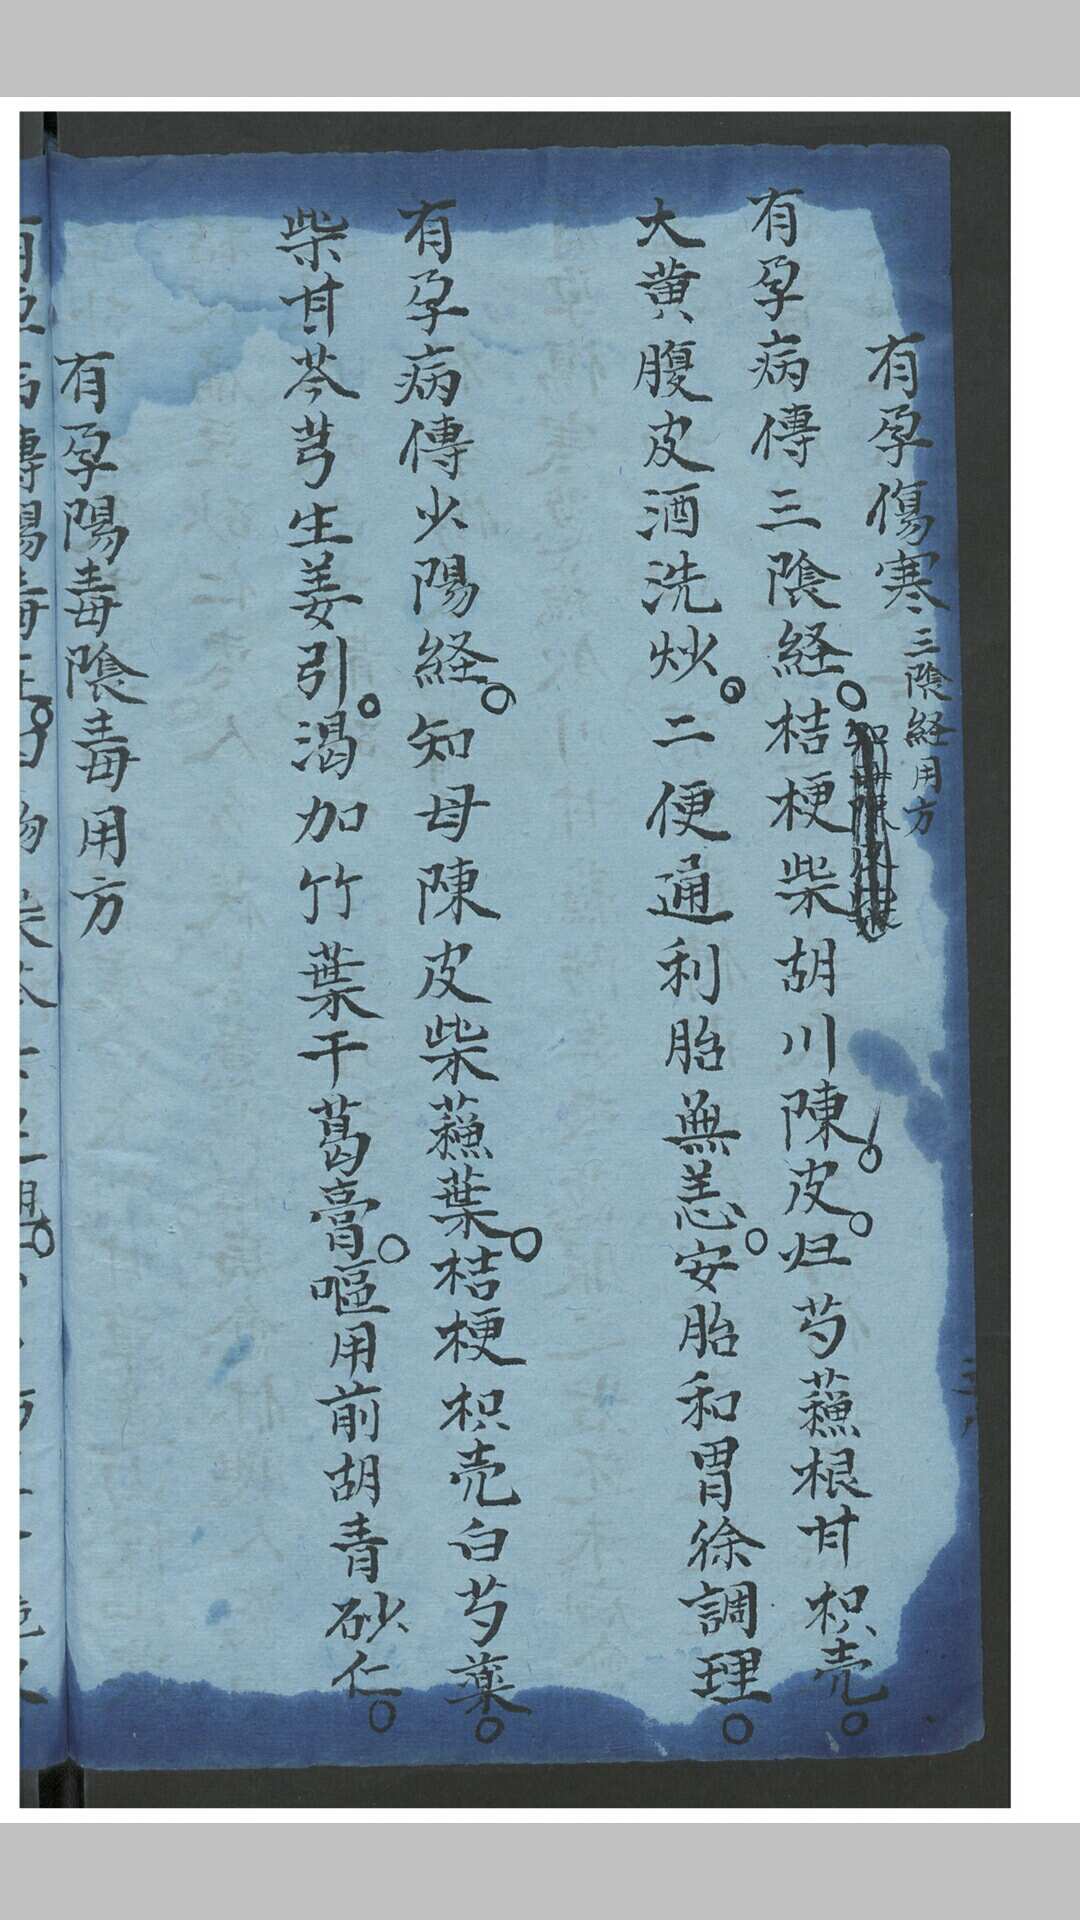 有孕傷寒三陰経用方
有孕病傳三陰経。桔梗柴胡川陳。皮。归芍蘓根甘枳壳。
大黄腹皮酒洗炒。二便通利胎無恙。安胎和胃徐調理。
有孕病傳少陽経。知母陳皮柴蘓葉。桔梗枳壳白芍藥。
柴甘芩芎生姜引。渴加竹葉干葛膏。嘔用前胡青砂仁。
有孕陽毒陰毒用方